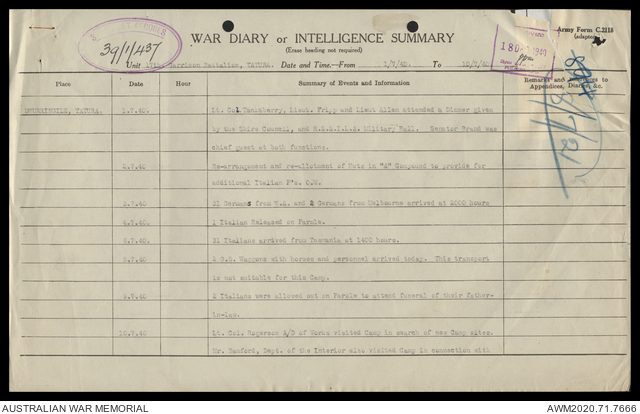 39/1/437
WAR DIARY or INTELLIGENCE SUMMARY
(Erase heading not required)
Army Form C.2118
(adapted)
Unit 17th Garrison Battalion, TATURA. Date and Time:—From 1/7/40. To 10/7/40
1940
Place Date Hour Summary of Events and Information Remarks and references to
Appendices, Diaries, &c.
TATURA. 1.7.40. Lt. Col. Lieut. Fripp and Lieut Allen attended a Dinner given
by the Shire Council, and Military Ball. Senator Brand was
chief guest at both functions.
2.7.40 Re-arrangement and re-allotment of Huts in "A" Compound to provide for
additional Italian P's. O.W.
3.7.40 21 Germans from W.A. and 2 Germans from Melbourne arrived at 2000 hours
4.7.40 1 Italian Released on Parole.
31 Italians arrived from Tasmania at 1400 hours.
Waggons with horses and personnel arrived today. This transport
is not suitable for this Camp.
2 Italians were allowed out on Parole to attend funeral of their father-
in-law.
10.7.40 Lt. Col. Rogerson A/D of Works visited Camp in search of new Camp sites.
Mr. Dept. of the Interior also visited Camp in connection with
AUSTRALIAN WAR MEMORIAL AWM2020.71.7666